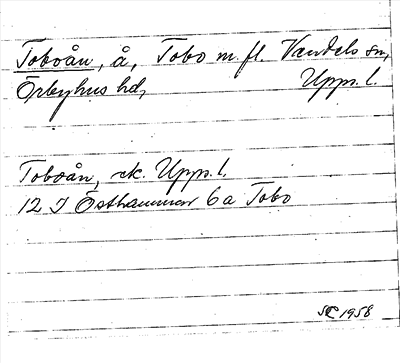 Toboån, å, Tobo m. fl. Vendels sn,
Örbyhus hd, Upps. l.
Toboån, ek. Upps. l.
12 I Östhammar 6 a Tobo
1958